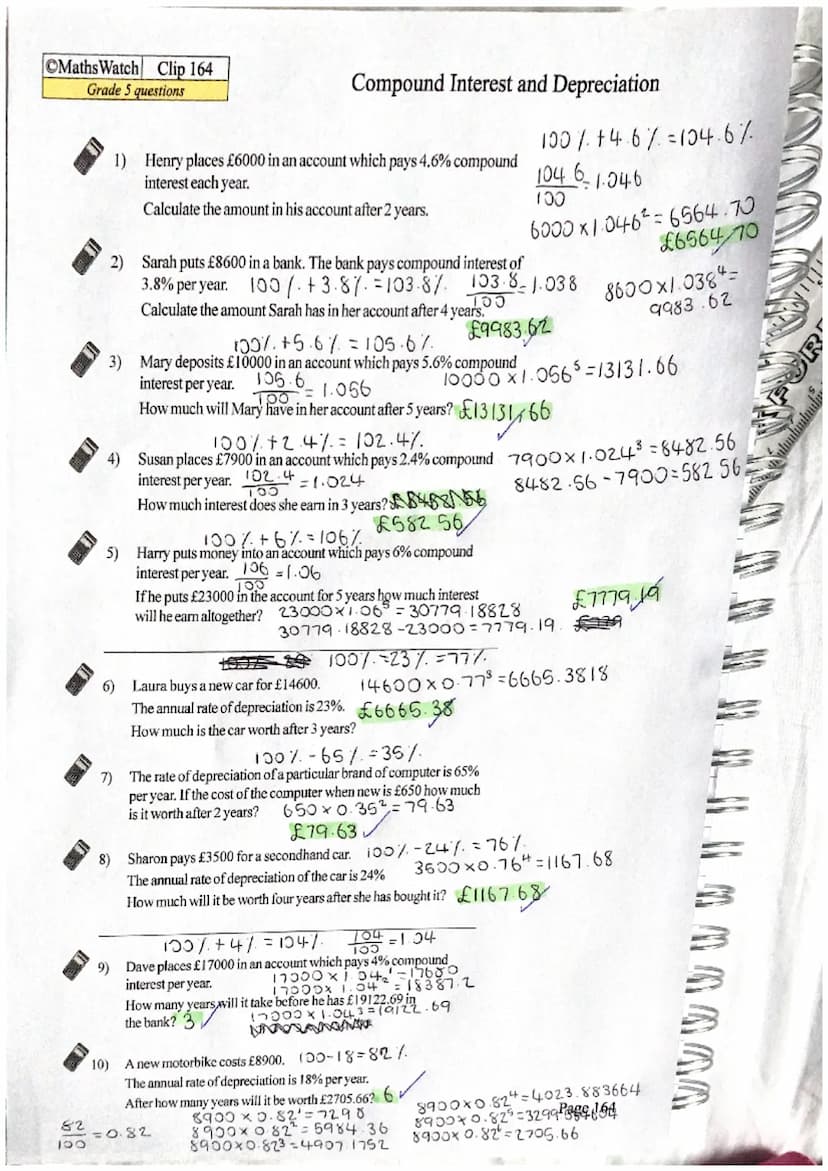 ©MathsWatch Clip 164
Grade 5 questions
Compound Interest and Depreciation
100% + 4.6% = 104.6%
1) Henry places £6000 in an account which pays 4.6% compound
interest each year.
104.6/100 = 1.046
Calculate the amount in his account after 2 years.
6000 × 1.046² = 6564.70
£6564.70
2) Sarah puts £8600 in a bank. The bank pays compound interest of
3.8% per year. 100% + 3.8% = 103.8% 103.8/100 = 1.038 8600 × 1.038⁴ =
9983.62
Calculate the amount Sarah has in her account after 4 years.
£9983.62
100% + 5.6% = 105.6%
3) Mary deposits £10000 in an account which pays 5.6% compound
interest per year. 105.6/100 = 1.056 10000 × 1.056⁵ = 13131.66
How much will Mary have in her account after 5 years? £13131.66
100% + 2.4% = 102.4%
4) Susan places £7900 in an account which pays 2.4% compound 7900 × 1.024³ = 8482.56
interest per year. 102.4/100 = 1.024 8482.56 - 7900 = 582.56
How much interest does she earn in 3 years?
£582.56
100% + 6% = 106%
5) Harry puts money into an account which pays 6% compound
interest per year. 106/100 = 1.06
If he puts £23000 in the account for 5 years how much interest £7779.19
will he earn altogether? 23000 × 1.06⁵ = 30779.18828
30779.18828 - 23000 = 7779.19
100% - 23% = 77%
6) Laura buys a new car for £14600. 14600 × 0.77³ = 6665.3818
The annual rate of depreciation is 23%. £6665.38
How much is the car worth after 3 years?
100% - 65% = 35%
7) The rate of depreciation of a particular brand of computer is 65%
per year. If the cost of the computer when new is £650 how much
is it worth after 2 years? 650 × 0.35² = 79.63
£79.63
8) Sharon pays £3500 for a secondhand car. 100% - 24% = 76%
The annual rate of depreciation of the car is 24% 3500 × 0.76⁴ = 1167.68
How much will it be worth four years after she has bought it? £1167.68
100% + 4% = 104% 104/100 = 1.04
9) Dave places £17000 in an account which pays 4% compound
interest per year. 17000 × 1.04¹ = 17680
17000 × 1.04² = 18387.2
How many years will it take before he has £19122.69 in
the bank? 3 17000 × 1.04³ = 19122.69
10) A new motorbike costs £8900. 100 - 18 = 82%
The annual rate of depreciation is 18% per year.
After how many years will it be worth £2705.66? 6
82/100 = 0.82
8900 × 0.82¹ = 7298
8900 × 0.82² = 5984.36
8900 × 0.82³ = 4907.1752
8900 × 0.82⁴ = 4023.883664
8900 × 0.82⁵ = 3299
8900 × 0.82⁶ = 2705.66
Page 164